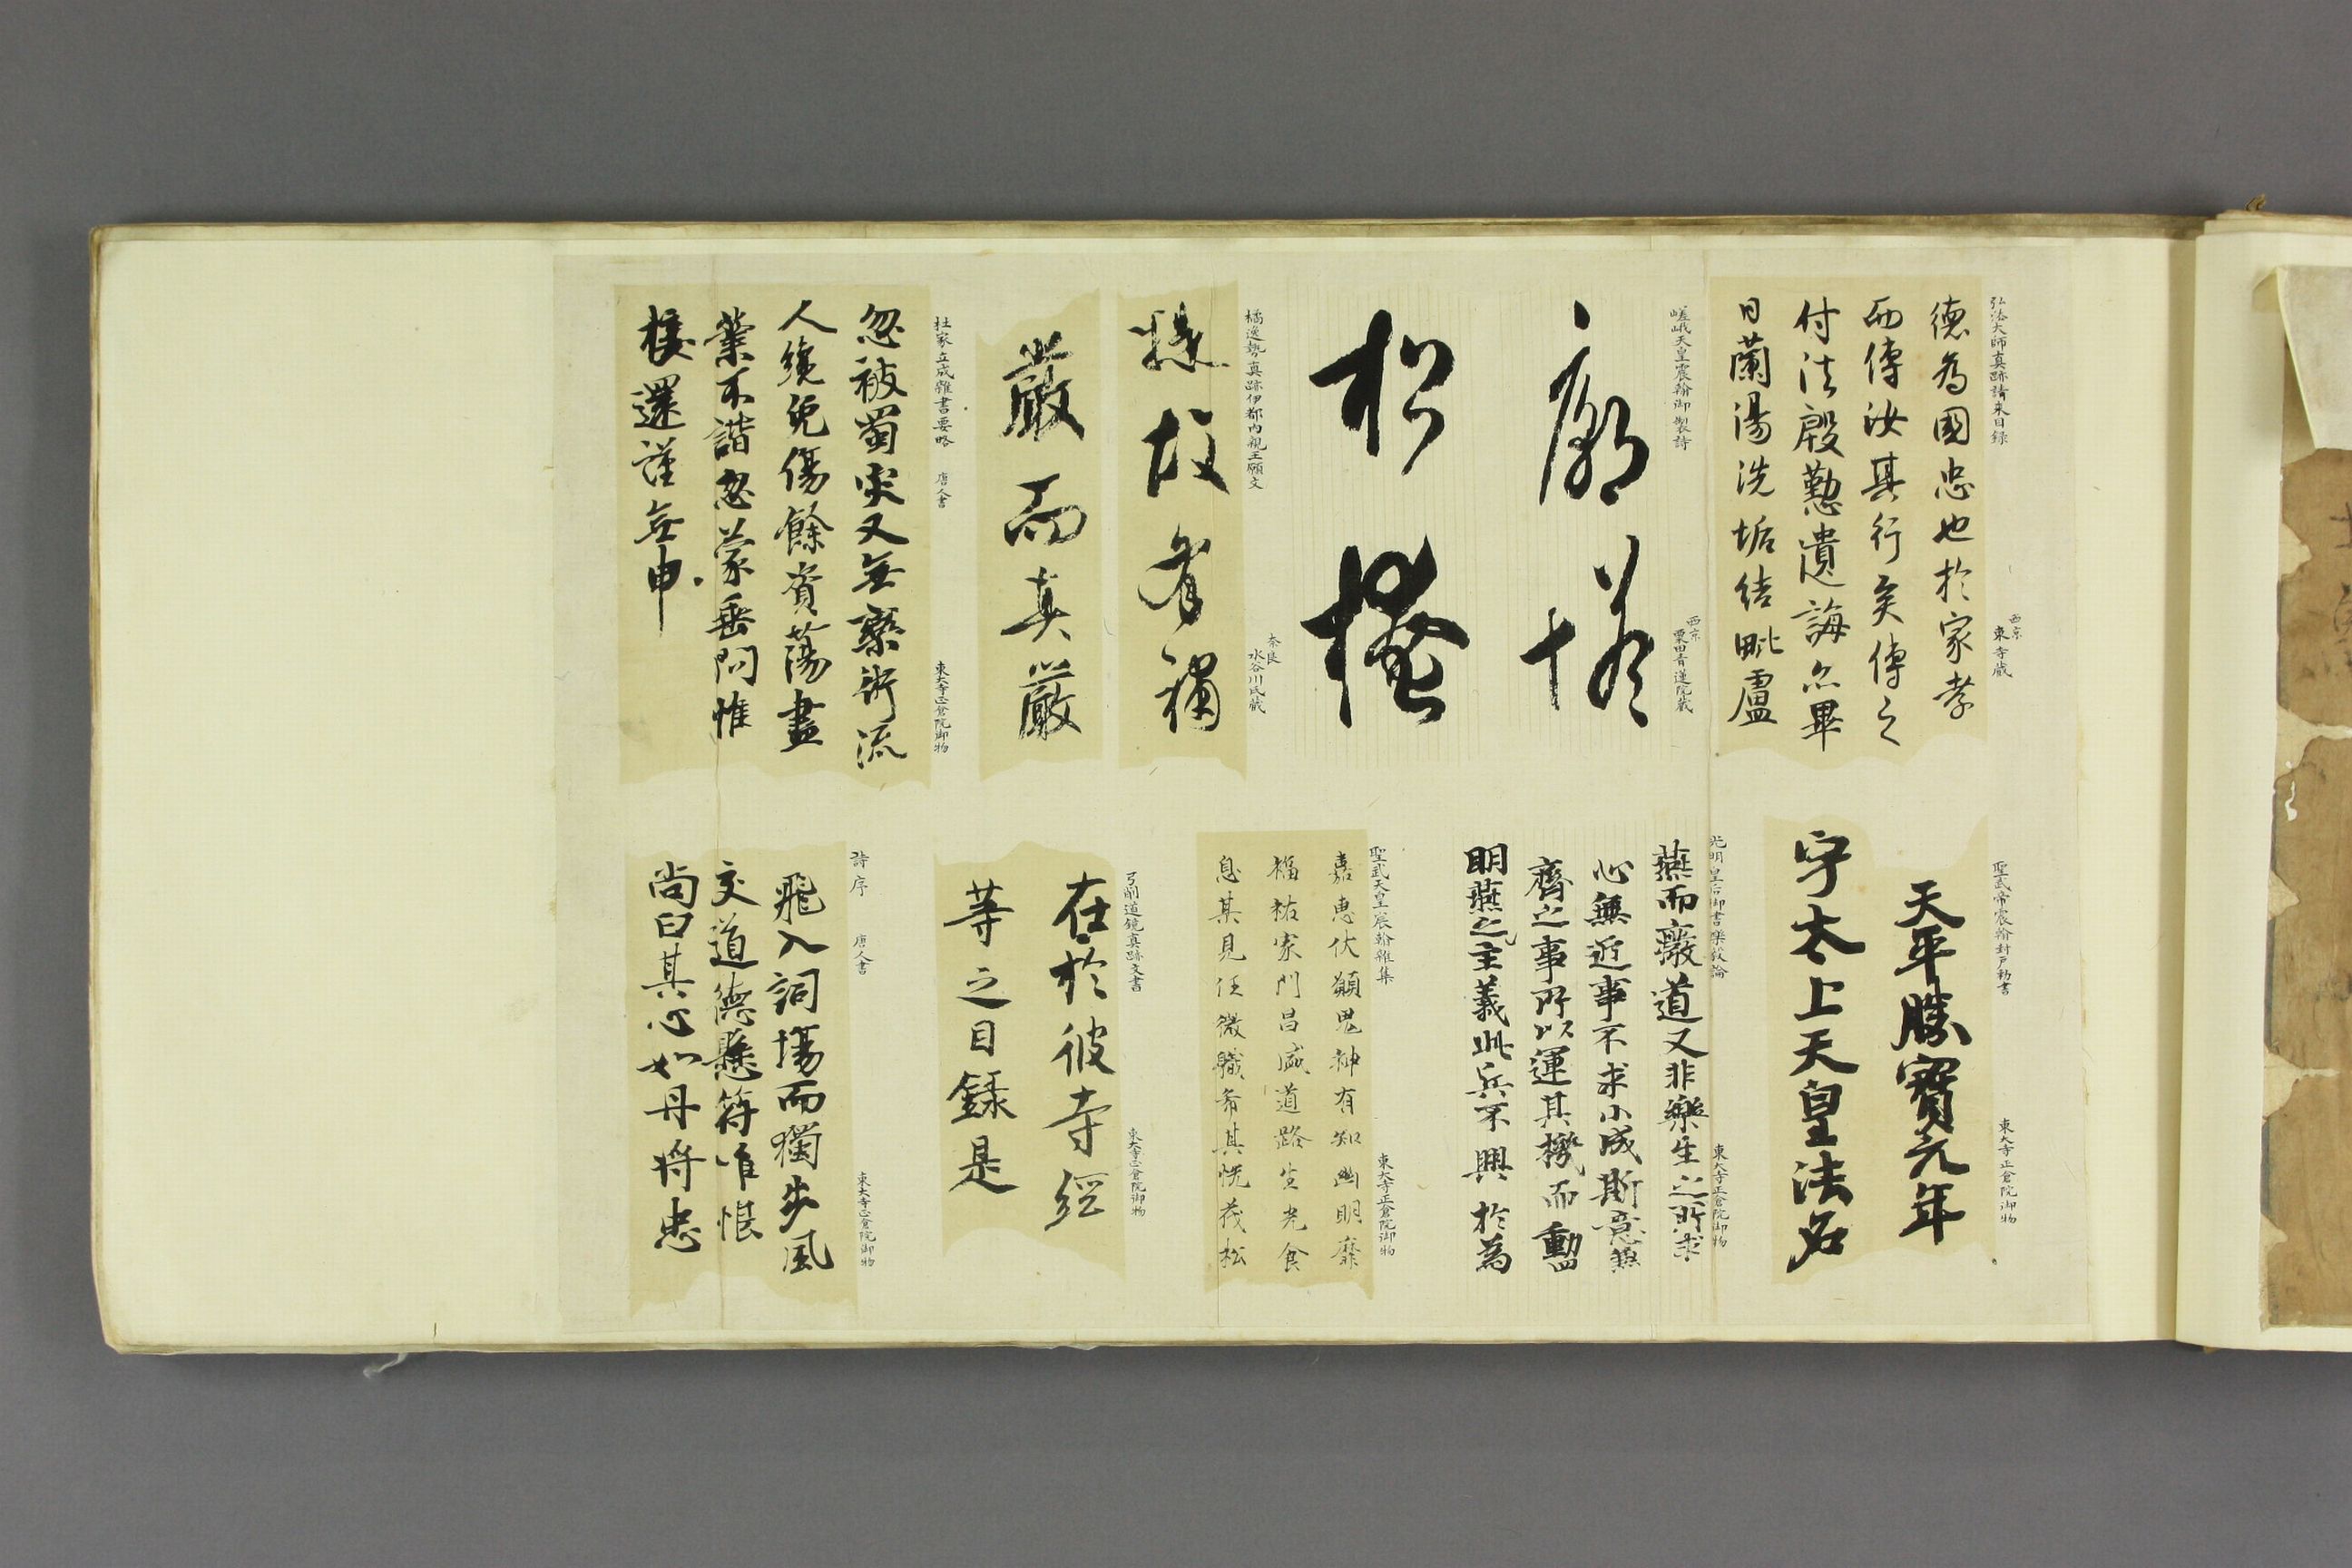 弘法大師真跡請来目録
西京
東寺蔵
德為國忠也於家孝
而傳汝其行矣傳之
付法慇懃遺誨亦畢
日蘭湯洗垢結毗盧
嵯峨天皇宸翰御製詩
西京
粟田青蓮院蔵
廓
松
橘逸勢真跡伊都内親王願文
奈良
水谷川氏蔵
故有
嚴而真嚴
杜家立成雜書要略 唐人書
東大寺正倉院御物
忽被蜀災又無藥術流
人纔免傷餘資蕩盡
業不諧忽蒙垂問惟
還謹無申
聖武帝宸翰封戸勅書
東大寺正倉院御物
天平勝寶元年
字太上天皇法名
光明皇后御書樂毅論
東大寺正倉院御物
燕而廢道又非樂生之所求
心無近事不求小成斯意兼
齊之事所以運其機而動四
明燕之主義此兵不興於為
聖武天皇宸翰雜集
東大寺正倉院御物
嘉惠伏願鬼神有知幽明靡
福祐家門昌盛道路生光食
息其見任微職希其恍茂松
弓削道鏡真跡文書
東大寺正倉院御物
在於彼寺經
等之目録是
詩序 唐人書
東大寺正倉院御物
飛入詞場而獨步風
交道德懸符唯恨
尚曰其心如丹将忠